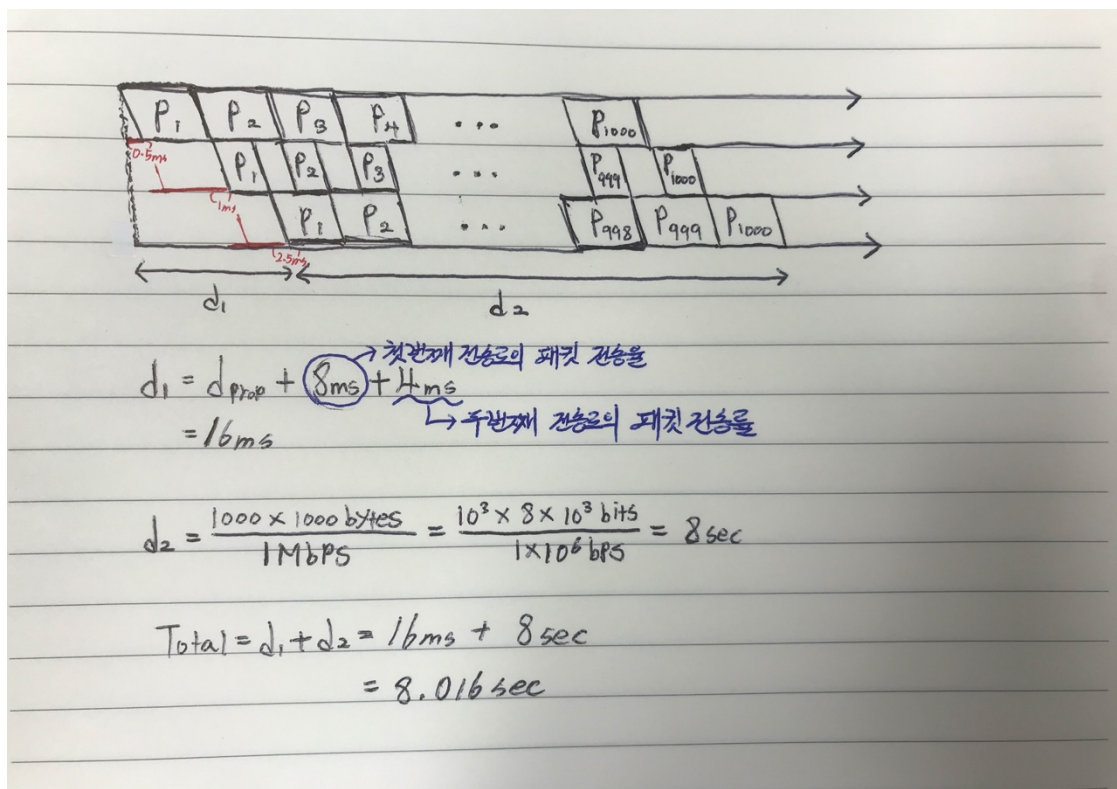 P1 P2 P3 P4 ... P1000
0.5ms P1 P2 P3 ... P999 P1000
1ms P1 P2 ... P998 P999 P1000
2.5ms
d1 d2
→ 첫번째 전송로의 패킷 전송율
d1 = dprop + 8ms + 4ms
→ 두번째 전송로의 패킷 전송률
= 16ms
d2 = 1000 × 1000 bytes / 1Mbps = 10³ × 8 × 10³ bits / 1×10⁶ bps = 8 sec
Total = d1 + d2 = 16ms + 8 sec
= 8.016 sec